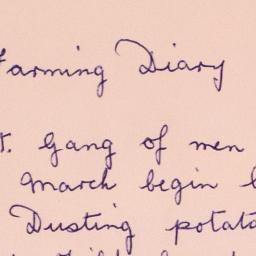 Farming Diary
Gang of men
March begin
Dusting potato